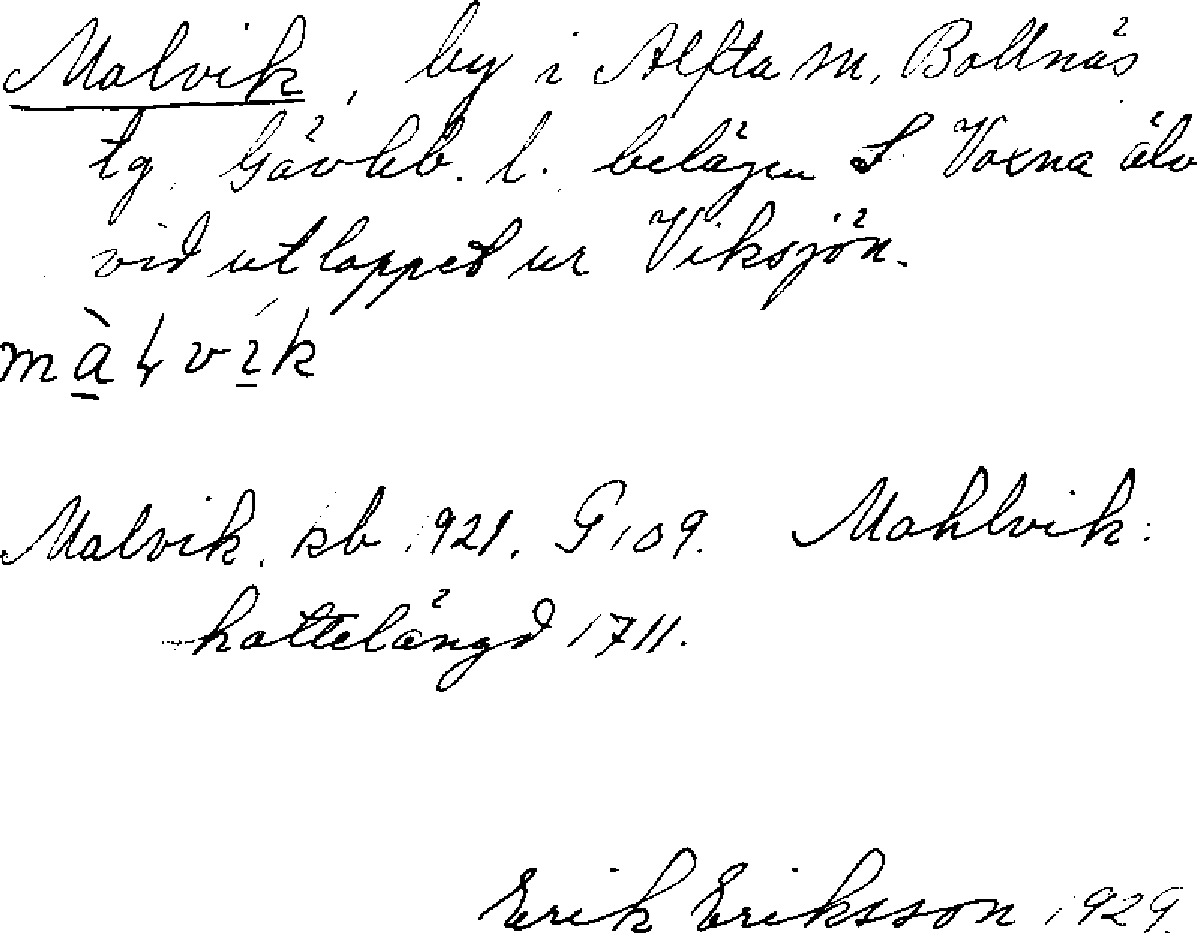 Malvik, by i Alfta m, Bollnäs
tg. Gävleb. l. belägen S. Voxna älv
vid utloppet ur Viksjön.
màɫvík
Malvik. kb 1921. G 109. Mahlvik:
kattelängd 1711.
Erik Eriksson 1929.